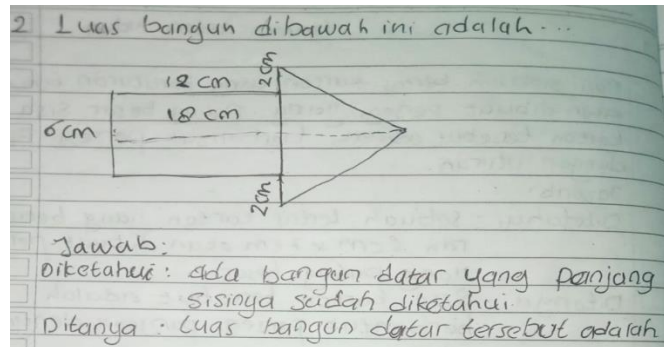 2 Luas bangun dibawah ini adalah...
2cm
12 cm
18 cm
6cm
2cm
Jawab:
Diketahui: ada bangun datar yang panjang
sisinya sudah diketahui.
Ditanya: Luas bangun datar tersebut adalah